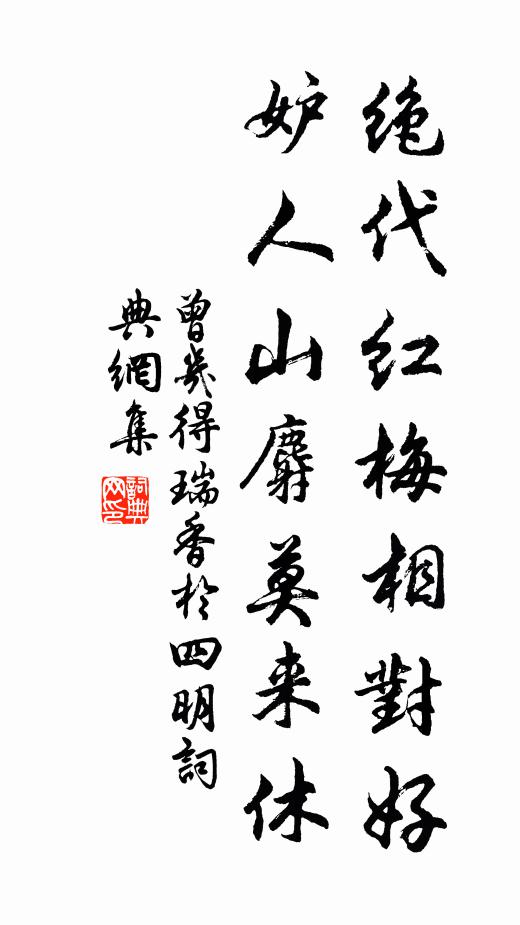 绝代红梅相對好
妒人山麝莫来休
曾㡬得瑞香於四明詞
典網集
詞典
网印